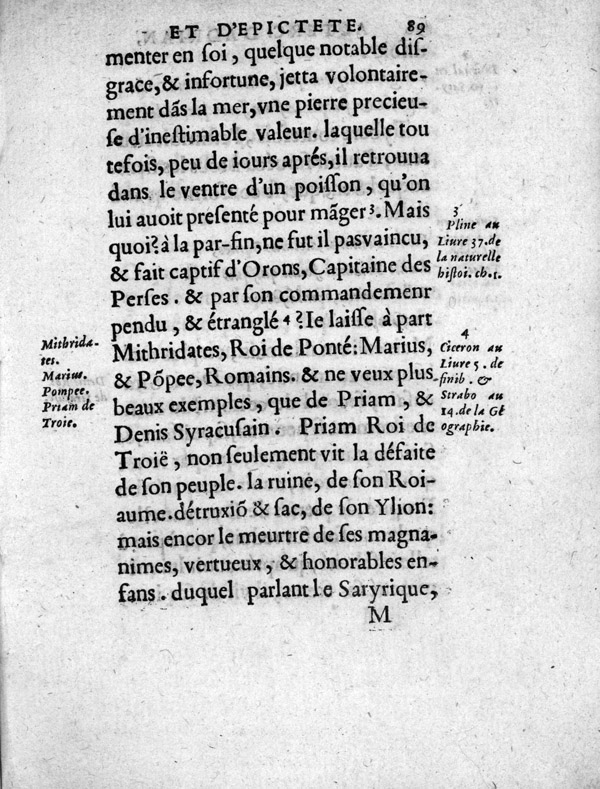 ET D'EPICTETE. 89
menter en ſoi, quelque notable diſ-
grace,& infortune, jetta volontaire-
ment dãs la mer,vne pierre precieu-
ſe d'ineſtimable valeur. laquelle tou
tefois, peu de iours aprés,il retrouua
dans le ventre d'un poiſſon, qu'on
lui auoit preſenté pour mãger³. Mais
quoi? à la par-fin,ne fut il pasvaincu,
& fait captif d'Orons,Capitaine des
Perſes. & par ſon commandemenr
pendu, & étranglé⁴?Ie laiſſe à part
Mithridates, Roi de Ponté: Marius,
& Põpee, Romains. & ne veux plus
beaux exemples, que de Priam, &
Denis Syracuſain. Priam Roi de
Troië, non ſeulement vit la défaite
de ſon peuple. la ruine, de ſon Roi-
aume.détruxiõ & ſac, de ſon Ylion:
mais encor le meurtre de ſes magna-
nimes, vertueux, & honorables en-
fans. duquel parlant le Saryrique,
M
3
Pline au
Liure 37.de
la naturelle
hiſtoi. ch.1.
4
Ciceron au
Liure 5. de
finib. &
Strabo au
14.de la Gé
ographie.
Mithrida-
tes.
Marius.
Pompee.
Priam de
Troie.